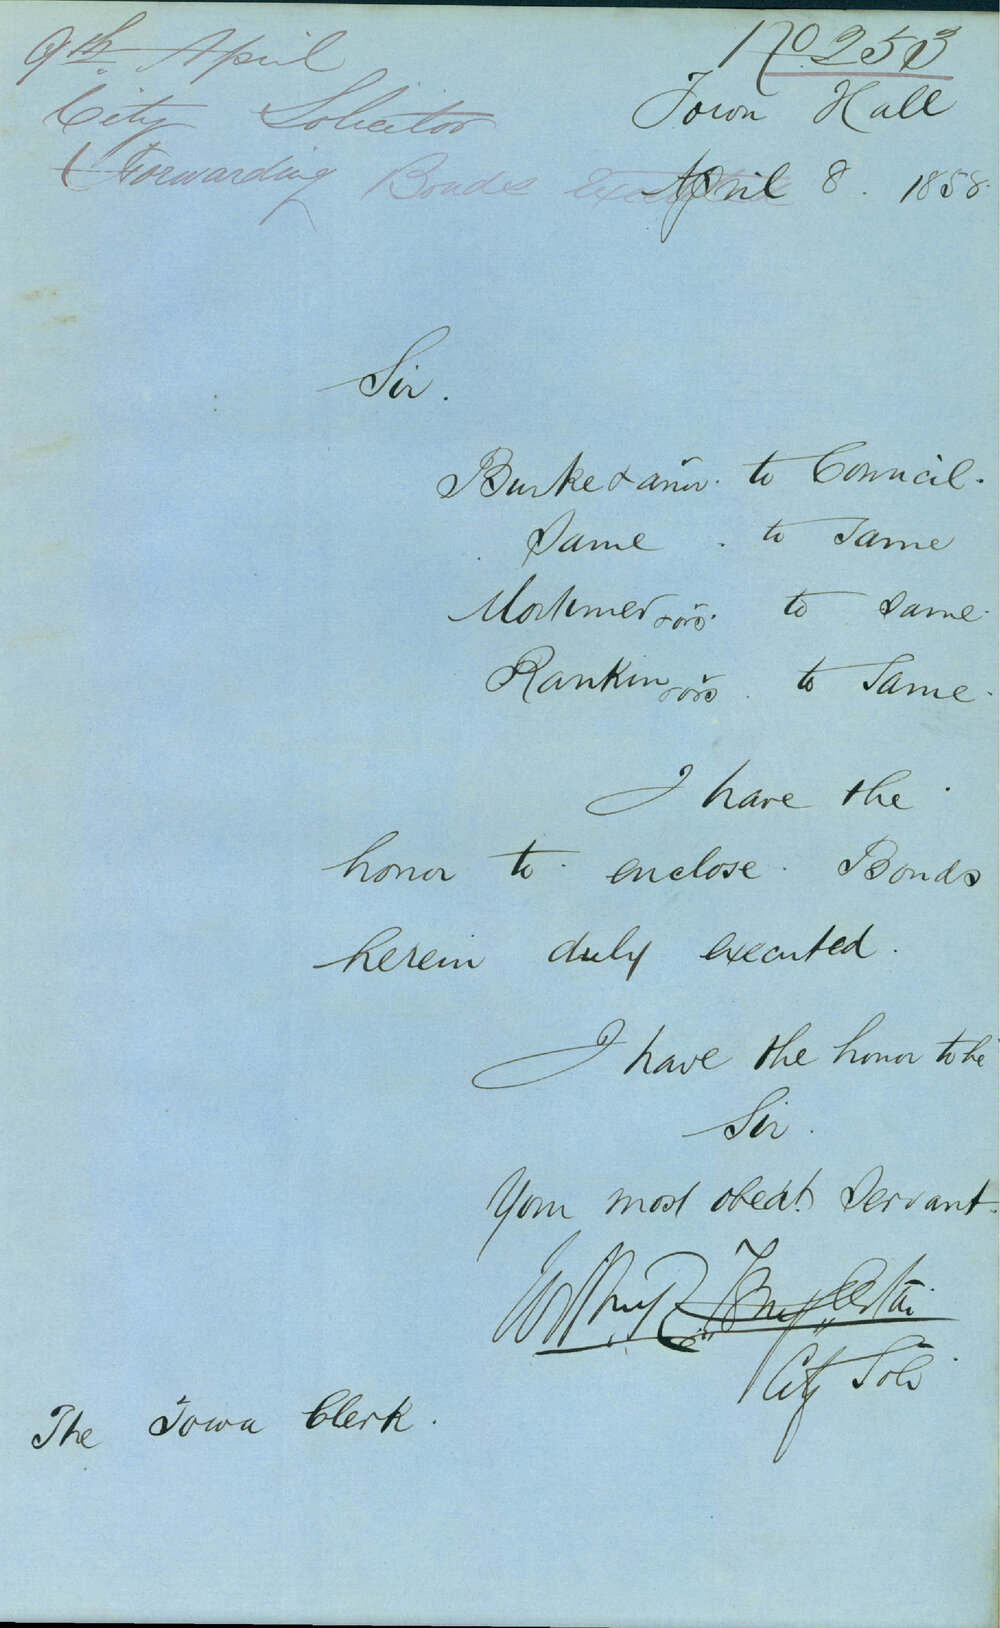 No 253
9th April
City Solicitor
Forwarding Bonds executed
Town Hall
April 8. 1858.
Sir.
Burke & anor. to Council.
Same . to Same
Mortimer & ors. to Same.
Rankin & ors. to Same.
I have the
honor to enclose Bonds
herein duly executed.
I have the honor to be
Sir.
Your most obedt. Servant.
City Solr.
The Town Clerk.